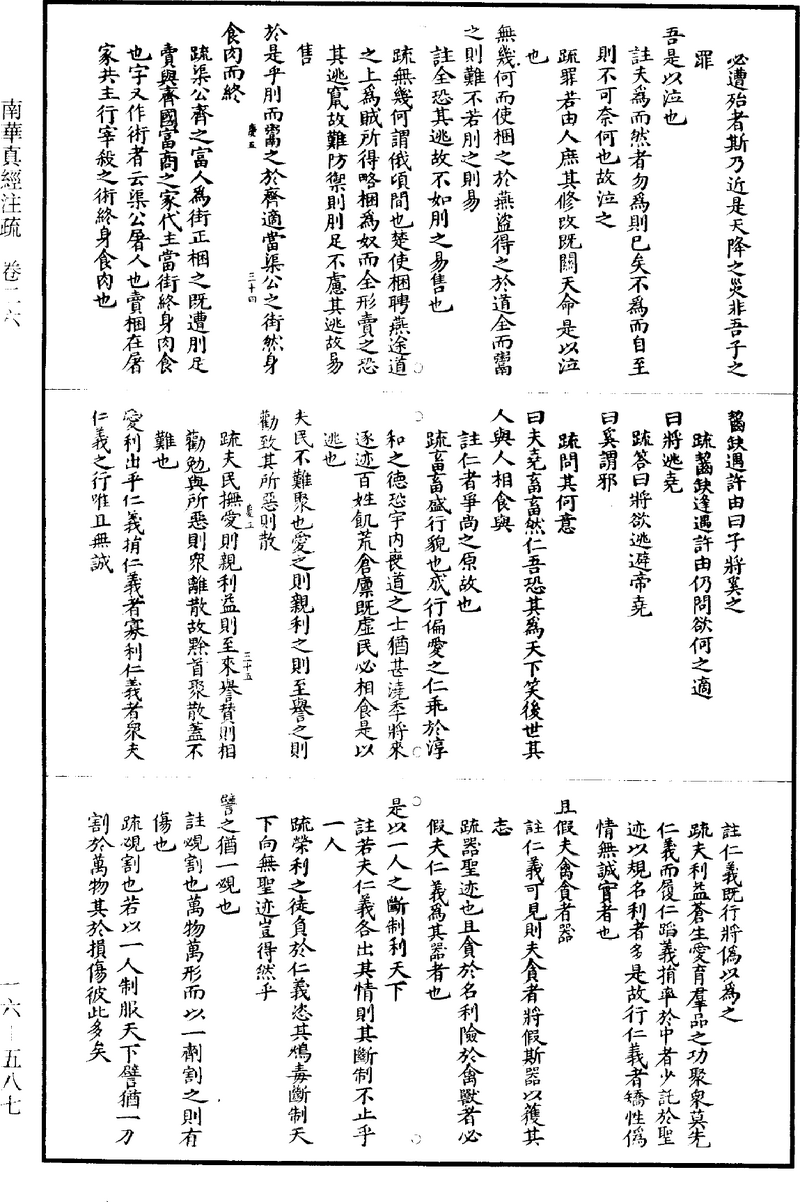 必遭殆者斯乃近是天降之災非吾子之
罪
吾是以泣也
註夫為而然者勿為則已矣不為而自至
則不可奈何也故泣之
疏罪若由人庶其修改既關天命是以泣
也
無幾何而使梱之於燕盜得之於道全而鬻
之則難不若刖之則易
註全恐其逃故不如刖之易售也
疏無幾何謂俄頃間也楚使梱聘燕途道
之上為賊所得略梱為奴而全形賣之恐
其逃竄故難防禦則刖足不慮其逃故易
售
於是乎刖而鬻之於齊適當渠公之街然身
食肉而終
疏渠公齊之富人為街正梱之既遭刖足
賣與齊國富商之家代主當街終身肉食
也字又作術者云渠公屠人也賣梱在屠
家共主行宰殺之術終身食肉也
慶五
三十四
齧缺遇許由曰子將奚之
疏齧缺逢遇許由仍問欲何之適
曰將逃堯
疏答曰將欲逃避帝堯
曰奚謂邪
疏問其何意
曰夫堯畜畜然仁吾恐其為天下笑後世其
人與人相食與
註仁者爭尚之原故也
疏畜畜盛行貌也成行偏愛之仁乖於淳
和之德恐宇內喪道之士猶甚澆季將來
逐迹百姓飢荒倉廩既虛民必相食是以
逃也
夫民不難聚也愛之則親利之則至譽之則
勸致其所惡則散
疏夫民撫愛則親利益則至來譽贊則相
勸勉與所惡則眾離散故黔首聚散蓋不
難也
慶五
三十五
愛利出乎仁義捐仁義者寡利仁義者眾夫
仁義之行唯且無誠
註仁義既行將偽以為之
疏夫利益蒼生愛育羣品之功聚眾莫先
仁義而履仁蹈義捐率於中者少託於聖
迹以規名利者多是故行仁義者矯性偽
情無誠實者也
且假夫禽貪者器
註仁義可見則夫貪者將假斯器以獲其
志
疏器聖迹也且貪於名利險於禽獸者必
假夫仁義為其器者也
是以一人之斷制利天下
註若夫仁義各出其情則其斷制不止乎
一人
疏榮利之徒負於仁義恣其鴆毒斷制天
下向無聖迹豈得然乎
譬之猶一覕也
註覕割也萬物萬形而以一劑割之則有
傷也
疏覕割也若以一人制服天下譬猶一刀
割於萬物其於損傷彼此多矣
南華真經注疏 卷二六
一六—五八七